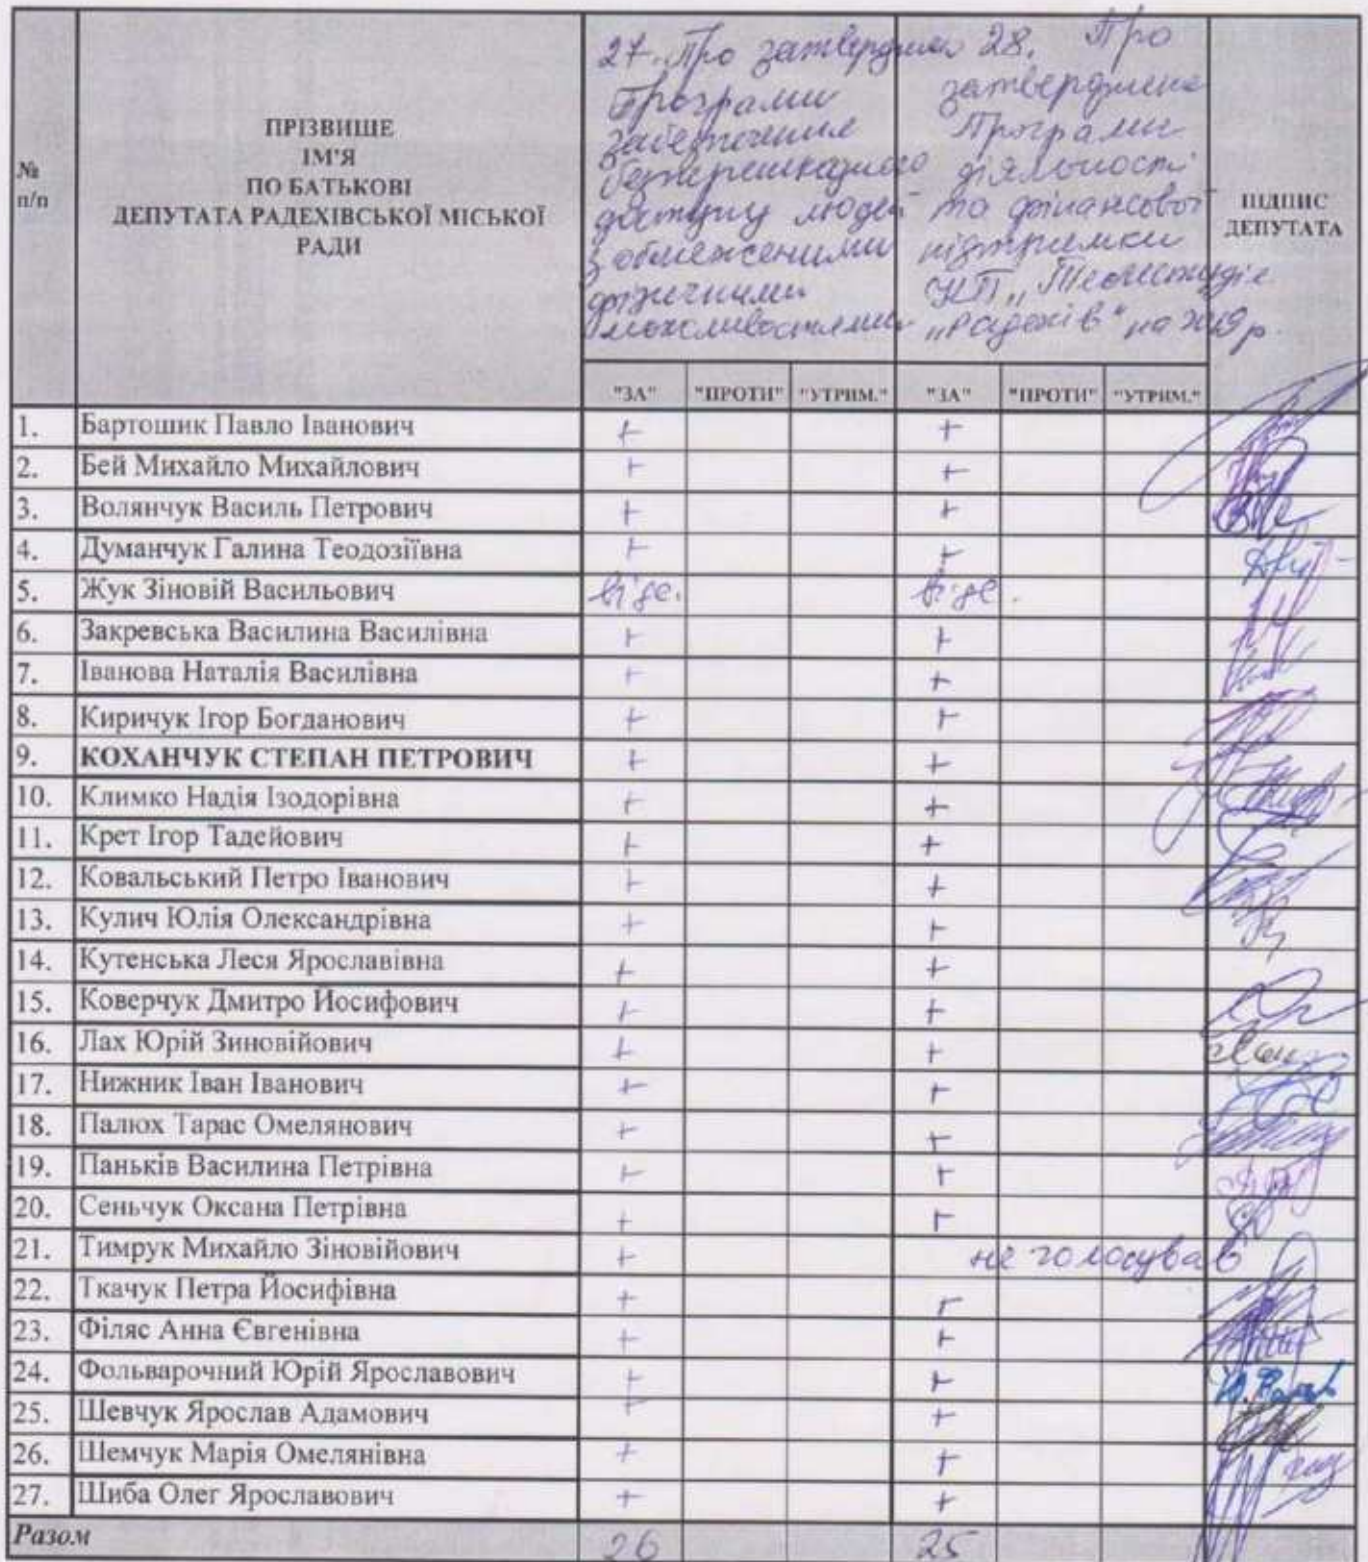 №
п/п
ПРІЗВИЩЕ
ІМ'Я
ПО БАТЬКОВІ
ДЕПУТАТА РАДЕХІВСЬКОЇ МІСЬКОЇ
РАДИ
27. Про затвердження
Програми
забезпечення
безперешкодного
доступу людей
з обмеженими
фізичними
можливостями
28. Про
затвердження
Програми
діяльності
та фінансової
підтримки
КП „Телестудія
„Радехів" на 2019 р.
ПІДПИС
ДЕПУТАТА
"ЗА" "ПРОТИ" "УТРИМ." "ЗА" "ПРОТИ" "УТРИМ."
1. Бартошик Павло Іванович + +
2. Бей Михайло Михайлович + +
3. Волянчук Василь Петрович + +
4. Думанчук Галина Теодозіївна + +
5. Жук Зіновій Васильович відс. відс.
6. Закревська Василина Василівна + +
7. Іванова Наталія Василівна + +
8. Киричук Ігор Богданович + +
9. КОХАНЧУК СТЕПАН ПЕТРОВИЧ + +
10. Климко Надія Ізодорівна + +
11. Крет Ігор Тадейович + +
12. Ковальський Петро Іванович + +
13. Кулич Юлія Олександрівна + +
14. Кутенська Леся Ярославівна + +
15. Коверчук Дмитро Йосифович + +
16. Лах Юрій Зиновійович + +
17. Нижник Іван Іванович + +
18. Палюх Тарас Омелянович + +
19. Паньків Василина Петрівна + +
20. Сеньчук Оксана Петрівна + +
21. Тимрук Михайло Зіновійович + не голосував
22. Ткачук Петра Йосифівна + +
23. Філяс Анна Євгенівна + +
24. Фольварочний Юрій Ярославович + +
25. Шевчук Ярослав Адамович + +
26. Шемчук Марія Омелянівна + +
27. Шиба Олег Ярославович + +
Разом 26 25